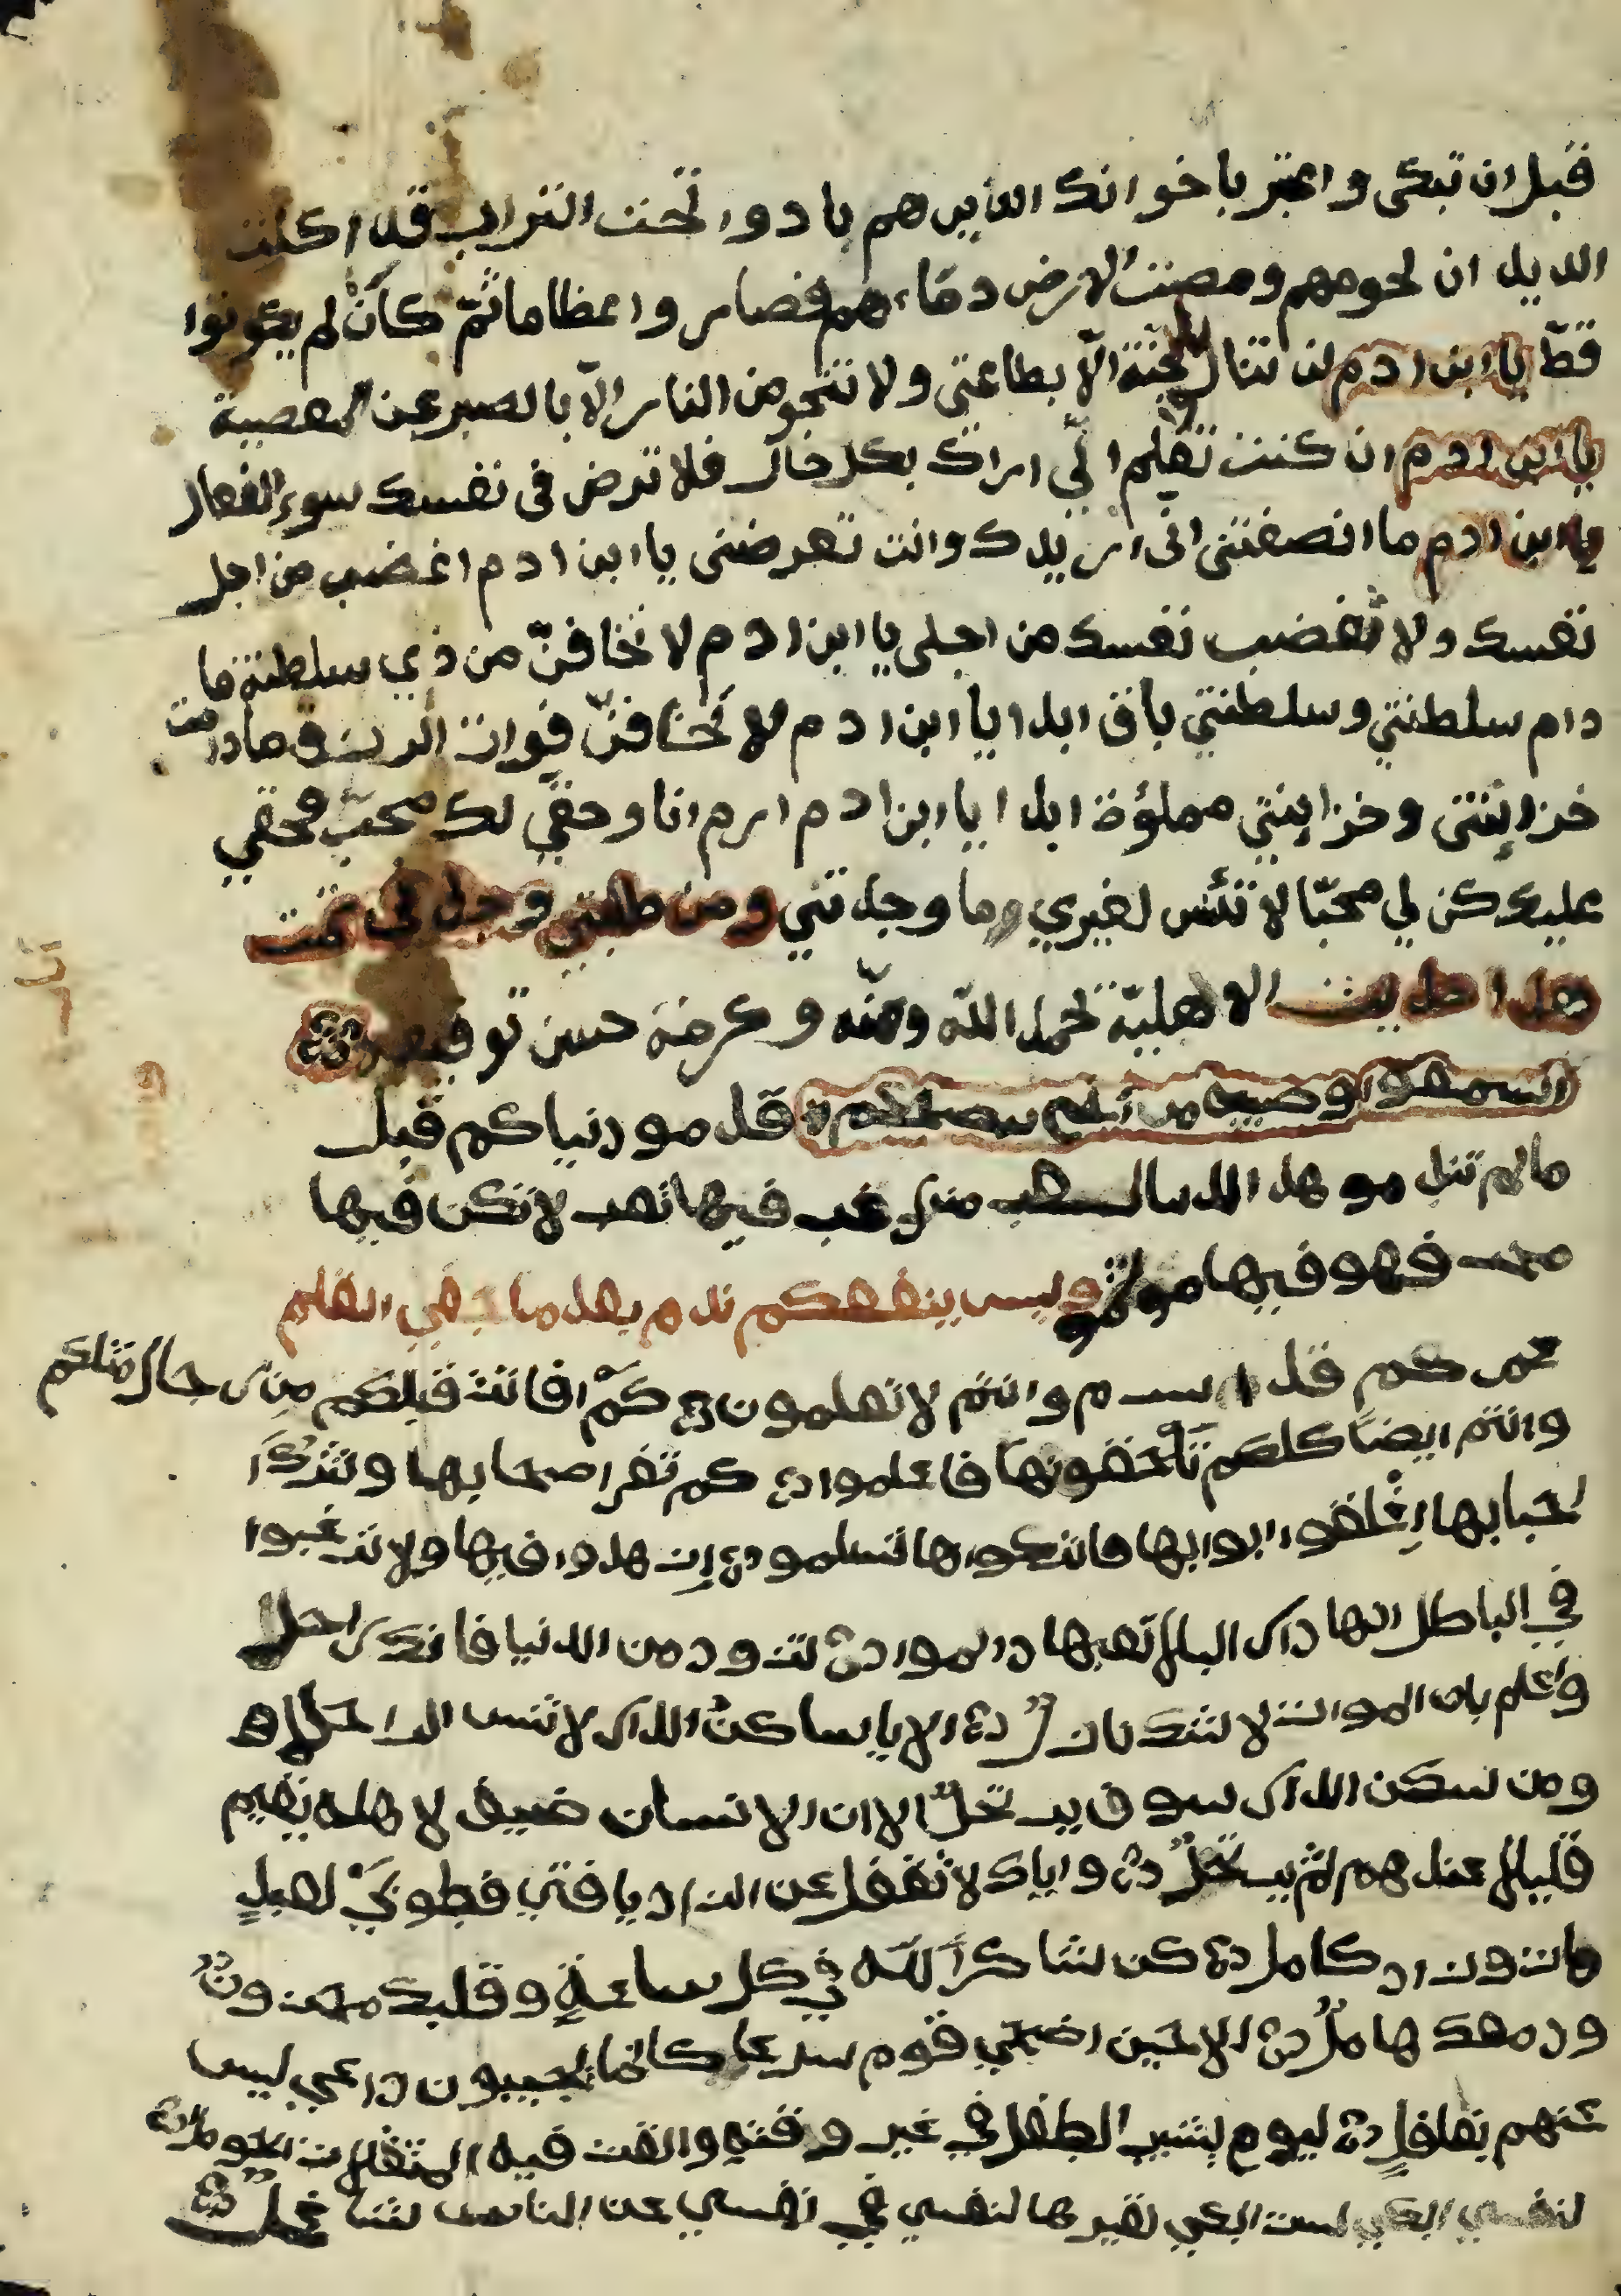 قبل ان تبكى واعتبر باخوانك الذين هم بادوا تحت التراب قد اكلت
الديدان لحومهم ومصت الارض دماءهم فصاروا عظاما ثمّ كأن لم يكونوا
قطّ يا ابن ادم لن تنال الجنّة الّا بطاعتى ولا تنجو من النار الّا بالصبر عن المعصية
يا ابن ادم ان كنت تعلم انّي اراك بكل حال فلا ترض فى نفسك سوء الفعال
يا ابن ادم ما انصفتنى انّى اريدك وانت تعرضنى يا ابن ادم اغضب من اجل
نفسك ولا تغضب نفسك من اجلى يا ابن ادم لا تخافنّ من ذي سلطنة ما
دام سلطنتي وسلطنتي باق ابدا يا ابن ادم لا تخافنّ فوات الرزق ما دامت
خزاينتى وخزاينتي مملؤة ابدا يا ابن ادم انا وحقّي لك محبّ فحقي
عليك كن لي محبّا لا تئس لغيري وما وجدتني ومن طلبني وجدنى تمت
هذا حديث الالهيّة بحمد اللّه ومنّه وكرمه حسن توفيقه
اسمعوا وصية من قدمو دنياكم قبل
ما لم تندمو هذا فيها تعب لا تكن فيها
فهو فيها
وليس ينفعكم ندم بعد ما جفي القلم
عمركم قد وانتم لا تعلمون كمّ افاتت قبلكم من رجال مثلكم
وانتم ايضا كلكم تلحقونها فاعلموا كم تفر اصحابها وتترك
احبابها اغلقوا ابوابها فاتركوها تسلمو ازهدوا فيها ولا ترغبوا
في الباطل انها دار البلا تعبها تزود من الدنيا فانك راحل
واعلم بان الموت لا شك نازل الا يا ساكن الدار لا تنس الراحله
ومن سكن الدار سوف يرحل الا ان الانسان ضيف لاهله يقيم
قليلا عندهم ثم يرحل واياك لا تغفل عن الزاد يا فتى فطوبى لعبد
مات وزاد كامل كن شاكراً للّه في كل ساعةٍ وقلبك محزون
ودمعك هامل الا حين اضحى قوم سرعا كانما يجيبون داعي ليس
عنهم بغافلٍ ليوم يشيب الطفل في غير وقته والقت فيه المثقلات الحوامل
لنفسي ابكي لست ابكي لغيرها لنفسي في نفسي عن الناس شاغل